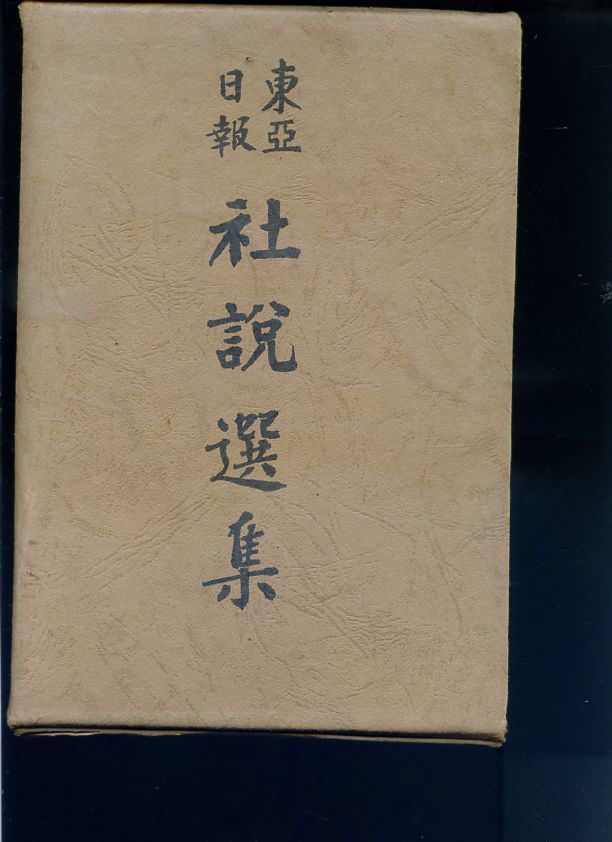 東亞
日報
社說選集